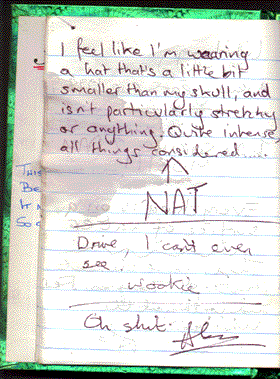 I feel like I'm wearing
a hat that's a little bit
smaller than my skull, and
isn't particularly stretchy
or anything. Quite intense
all things considered.....
NAT
Drive, I can't even
see.
wookie
Oh shit.